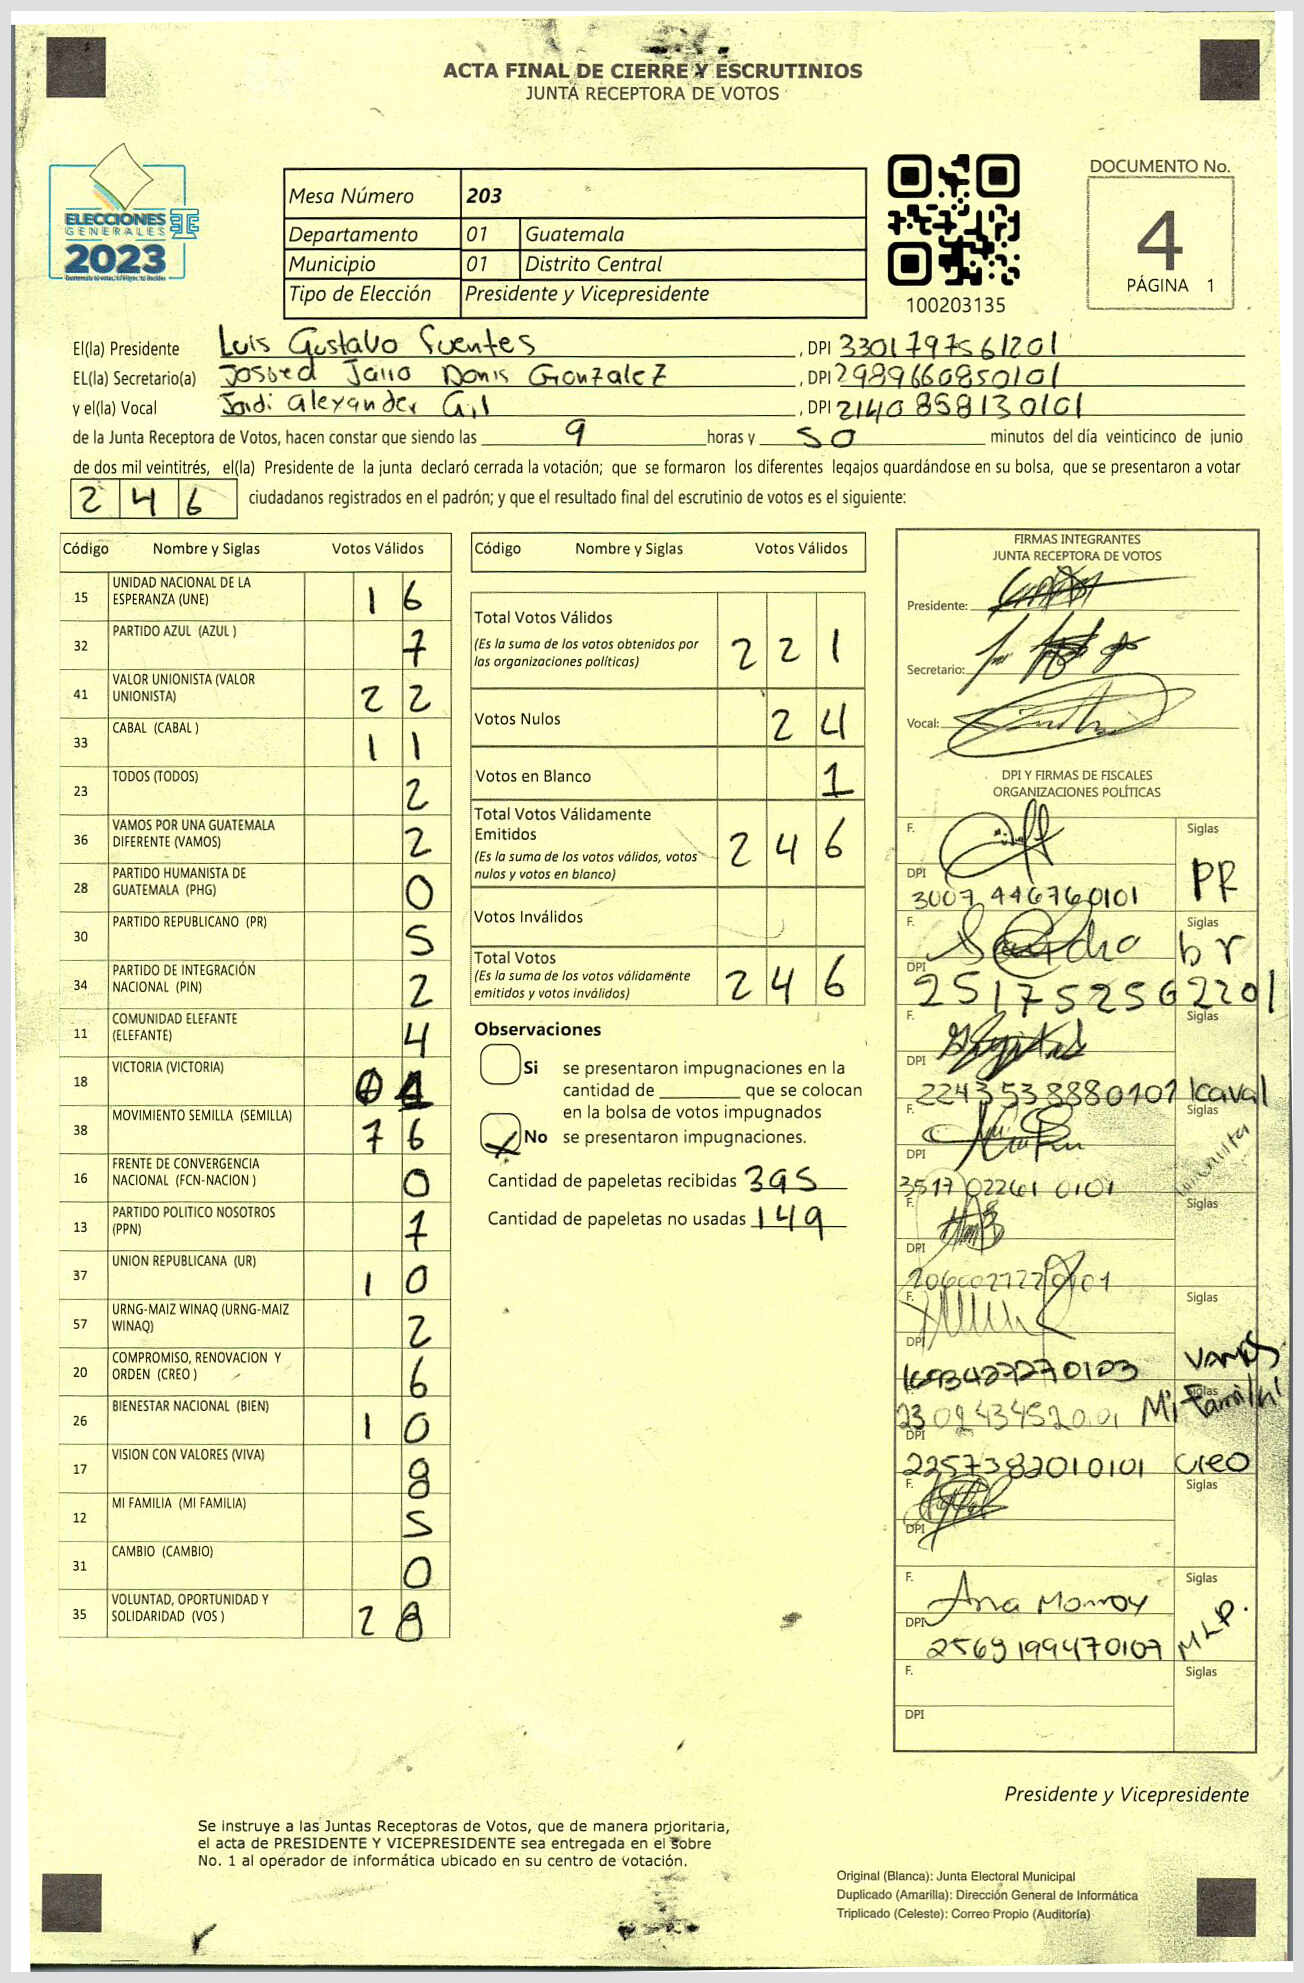 ACTA FINAL DE CIERRE Y ESCRUTINIOS
JUNTA RECEPTORA DE VOTOS
ELECCIONES
GENERALES
2023
Mesa Número 203
Departamento 01 Guatemala
Municipio 01 Distrito Central
Tipo de Elección Presidente y Vicepresidente
100203135
DOCUMENTO No.
4
PÁGINA 1
El(la) Presidente Luis Gustavo Fuentes , DPI 3301797561201
EL(la) Secretario(a) Donis Gonzalez , DPI 2989660850101
y el(la) Vocal Jordi Alexander Gil , DPI 2140858130101
de la Junta Receptora de Votos, hacen constar que siendo las 9 horas y 50 minutos del día veinticinco de junio
de dos mil veintitrés, el(la) Presidente de la junta declaró cerrada la votación; que se formaron los diferentes legajos quardándose en su bolsa, que se presentaron a votar
246 ciudadanos registrados en el padrón; y que el resultado final del escrutinio de votos es el siguiente:
Código Nombre y Siglas Votos Válidos
15 UNIDAD NACIONAL DE LA ESPERANZA (UNE) 16
32 PARTIDO AZUL (AZUL ) 7
41 VALOR UNIONISTA (VALOR UNIONISTA) 22
33 CABAL (CABAL ) 11
23 TODOS (TODOS) 2
36 VAMOS POR UNA GUATEMALA DIFERENTE (VAMOS) 2
28 PARTIDO HUMANISTA DE GUATEMALA (PHG) 0
30 PARTIDO REPUBLICANO (PR) 5
34 PARTIDO DE INTEGRACIÓN NACIONAL (PIN) 2
11 COMUNIDAD ELEFANTE (ELEFANTE) 4
18 VICTORIA (VICTORIA)
38 MOVIMIENTO SEMILLA (SEMILLA) 76
16 FRENTE DE CONVERGENCIA NACIONAL (FCN-NACION ) 0
13 PARTIDO POLITICO NOSOTROS (PPN) 7
37 UNION REPUBLICANA (UR) 10
57 URNG-MAIZ WINAQ (URNG-MAIZ WINAQ) 2
20 COMPROMISO, RENOVACION Y ORDEN (CREO ) 6
26 BIENESTAR NACIONAL (BIEN) 10
17 VISION CON VALORES (VIVA) 8
12 MI FAMILIA (MI FAMILIA) 5
31 CAMBIO (CAMBIO) 0
35 VOLUNTAD, OPORTUNIDAD Y SOLIDARIDAD (VOS ) 28
Código Nombre y Siglas Votos Válidos
Total Votos Válidos 221
(Es la suma de los votos obtenidos por
las organizaciones políticas)
Votos Nulos 24
Votos en Blanco 1
Total Votos Válidamente
Emitidos 246
(Es la suma de los votos válidos, votos
nulos y votos en blanco)
Votos Inválidos
Total Votos 246
(Es la suma de los votos válidamente
emitidos y votos inválidos)
Observaciones
Si se presentaron impugnaciones en la
cantidad de ________ que se colocan
en la bolsa de votos impugnados
No se presentaron impugnaciones.
Cantidad de papeletas recibidas 395
Cantidad de papeletas no usadas 149
FIRMAS INTEGRANTES
JUNTA RECEPTORA DE VOTOS
Presidente:
Secretario:
Vocal:
DPI Y FIRMAS DE FISCALES
ORGANIZACIONES POLÍTICAS
F. Siglas
DPI PR
3007 446760101
F. Siglas
DPI br
2517525662201
F. Siglas
DPI
2243538880101
F. Siglas
DPI
3517022610101
F. Siglas
DPI
F. Siglas
DPI
Vamos
Siglas
Mi Familia
DPI
2257382010101 Creo
F. Siglas
DPI
F. Ana Monroy Siglas
DPI
2569199470107 MLP.
F. Siglas
DPI
Presidente y Vicepresidente
Se instruye a las Juntas Receptoras de Votos, que de manera prioritaria,
el acta de PRESIDENTE Y VICEPRESIDENTE sea entregada en el sobre
No. 1 al operador de informática ubicado en su centro de votación.
Original (Blanca): Junta Electoral Municipal
Duplicado (Amarilla): Dirección General de Informática
Triplicado (Celeste): Correo Propio (Auditoría)